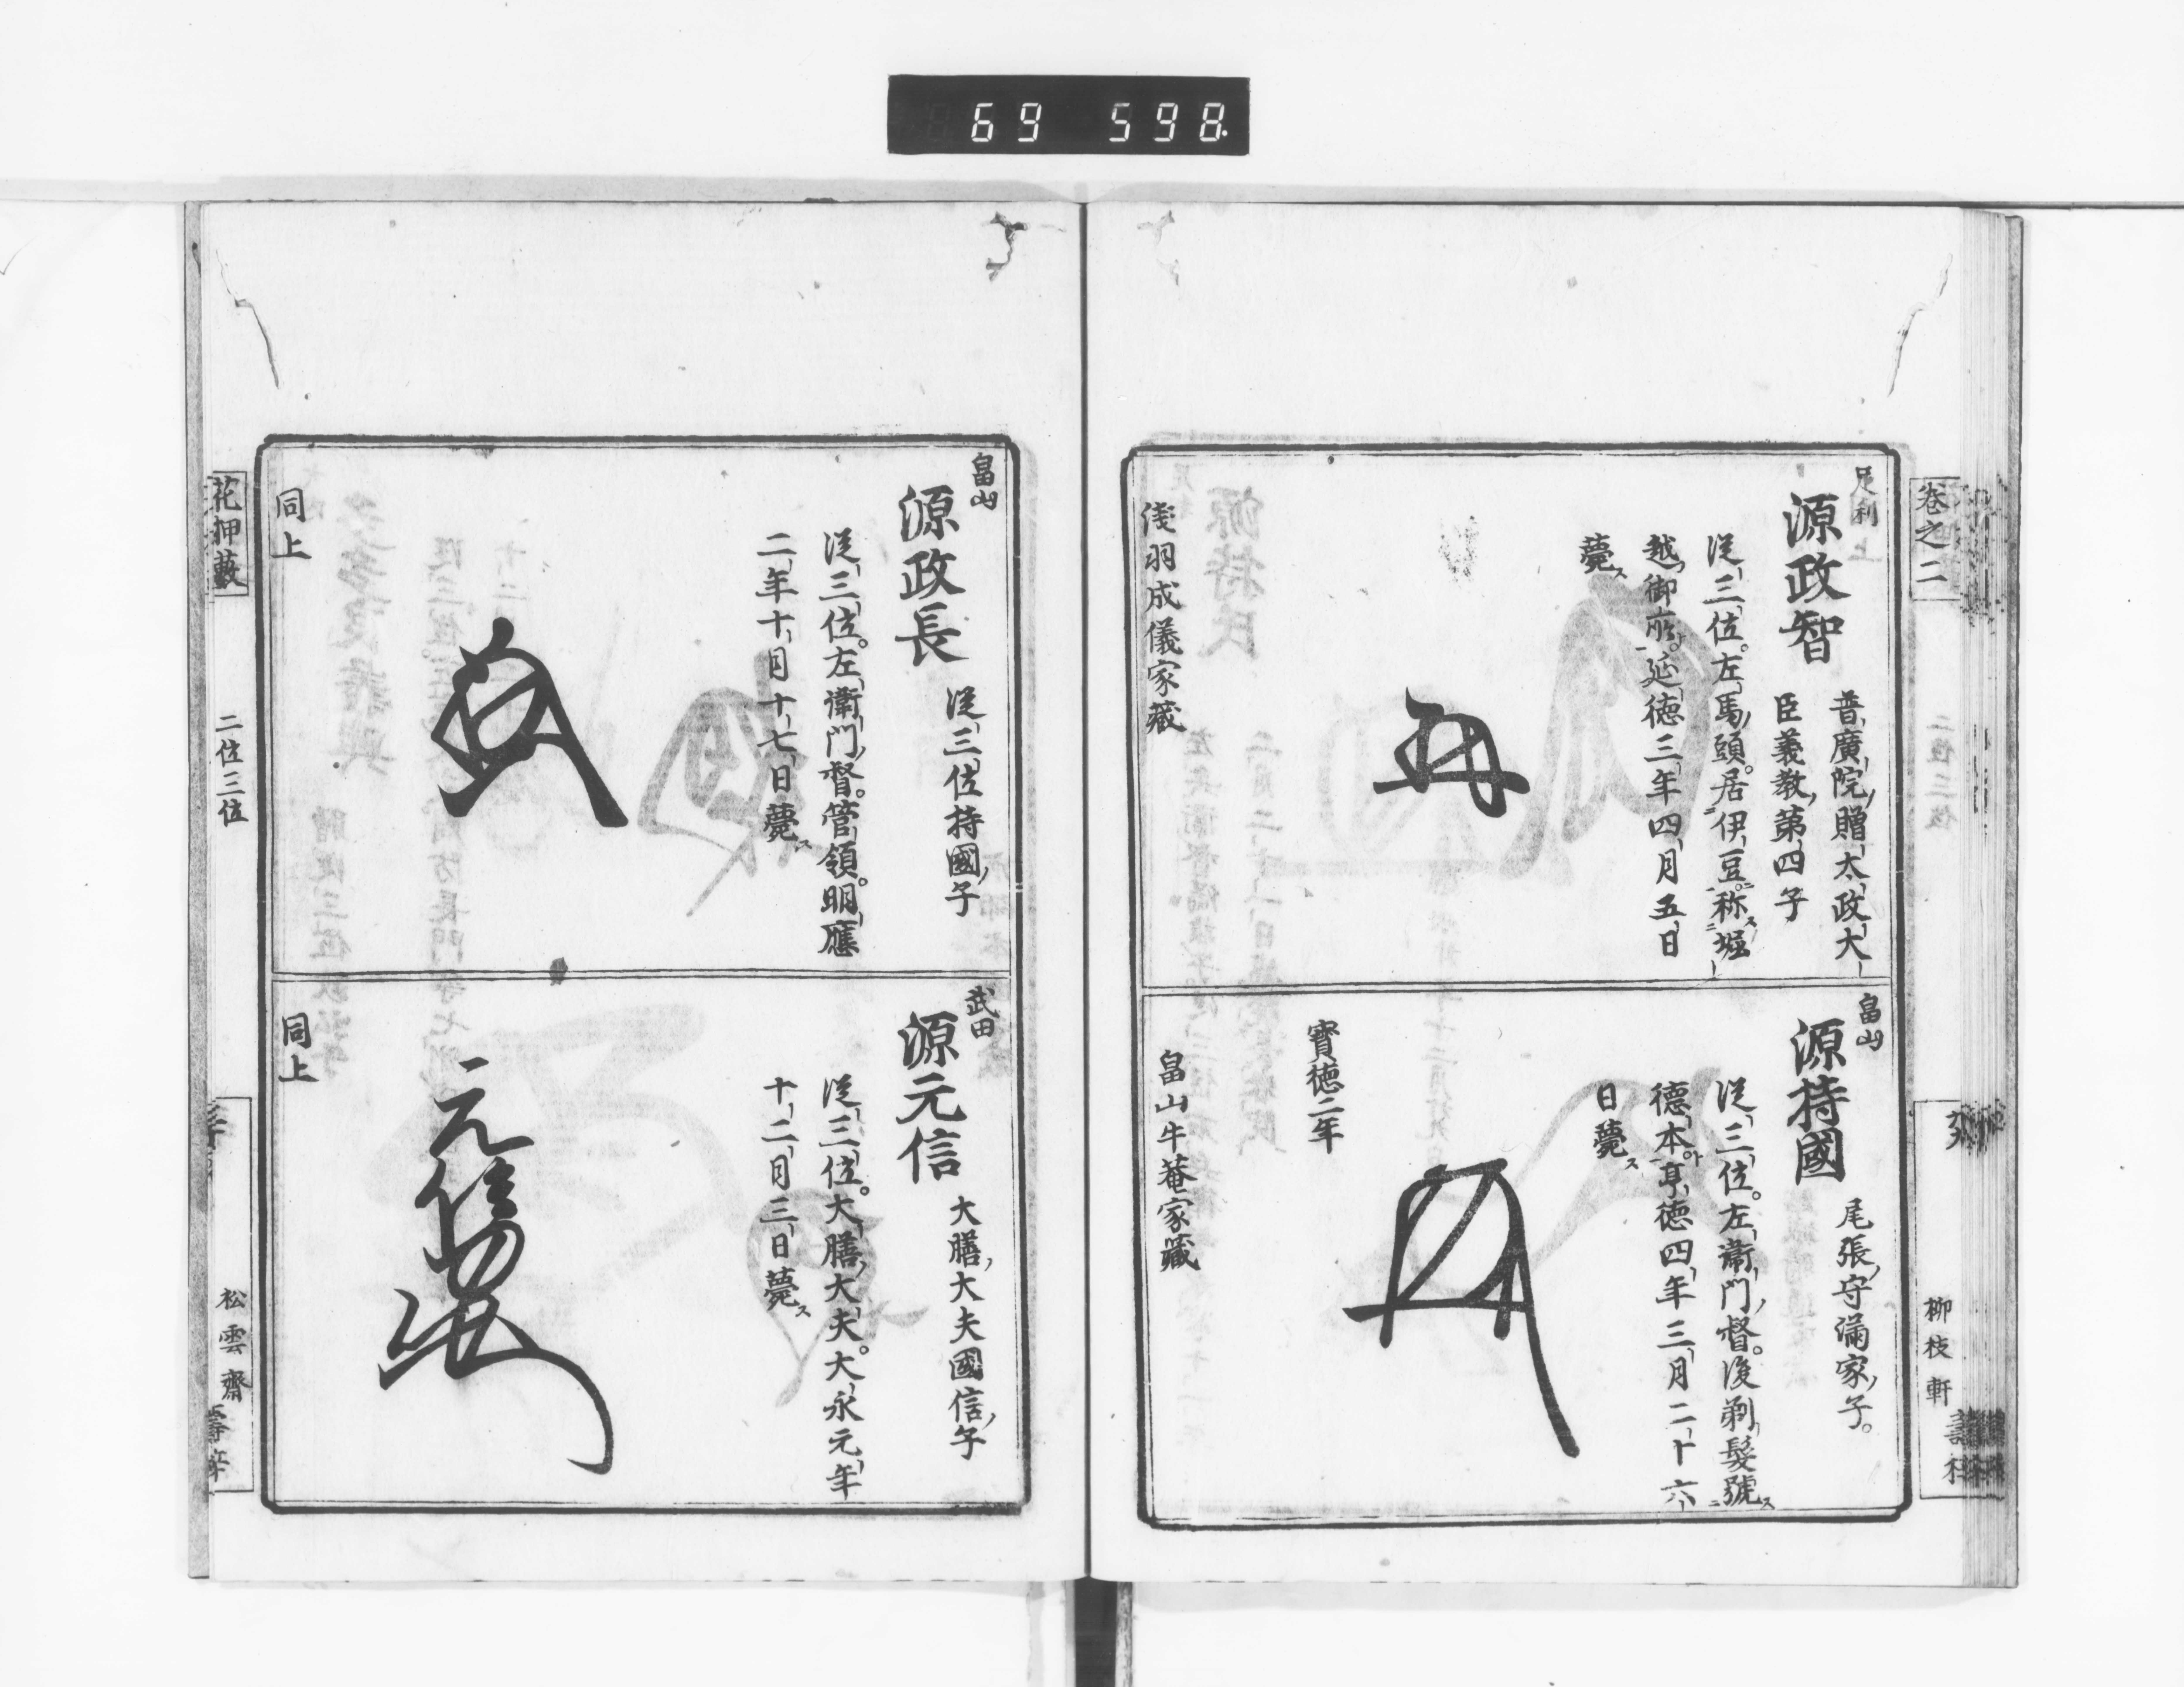 69 598
卷之二
足利
源政智
普廣院贈太政大
臣義教第四子
從三位左馬頭居伊豆称堀
越御所延徳三年四月五日
薨ス
淺羽成儀家藏
畠山
源持國
尾張守滿家子
從三位左衛門督後剃髮號ス
德本亨徳四年三月二十六
日薨ス
寶徳二年
畠山牛菴家藏
柳枝軒
畠山
源政長
從三位持國子
從三位左衛門督管領明應
二年十月十七日薨ス
同上
武田
源元信
大膳大夫國信子
從三位大膳大夫大永元年
十二月三日薨ス
元信
同上
花押藪
二位三位
松雲齋